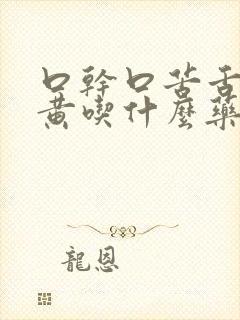 口幹口苦舌
黄喫什麼藥
龍恩